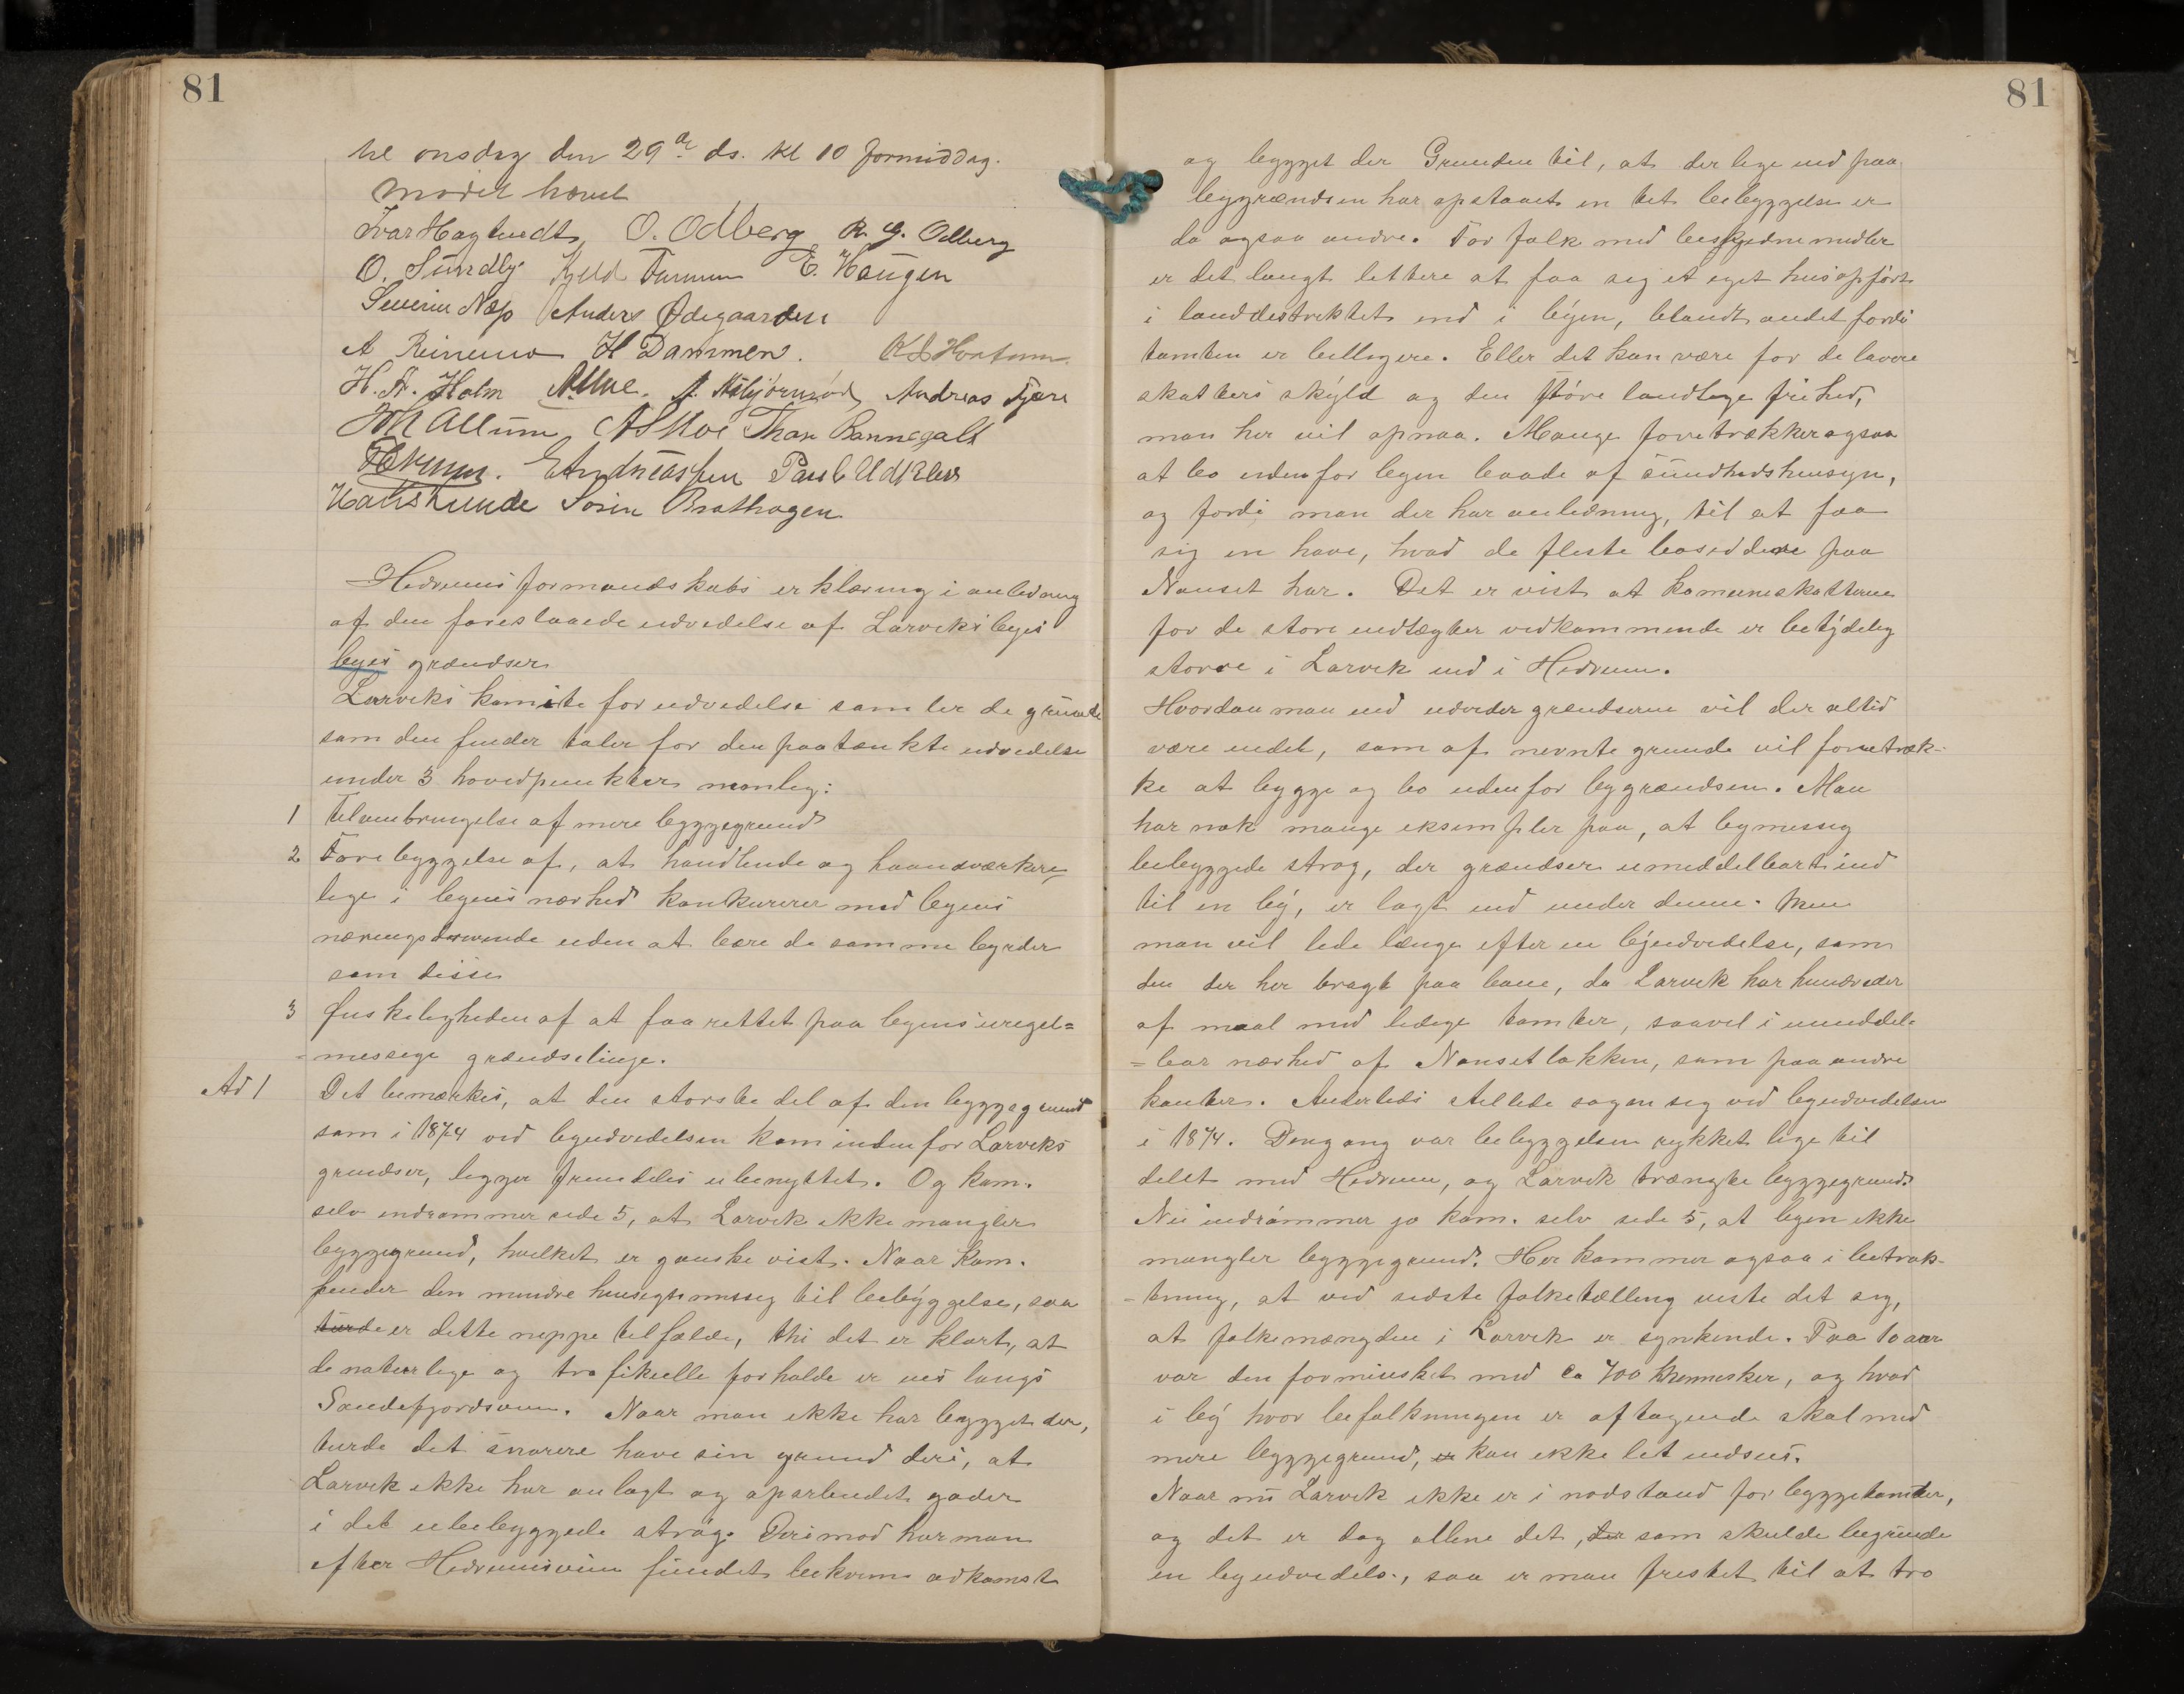 81
til onsdag den 29de ds. kl 10 formiddag.
Mødet hævet
Ivar Hogtvedt, O. Odberg R. G. Odberg
O. Sundby Kjeld Furum E. Haugen
Severin Næs Anders Ødegaarden
A H Dammen.
H. A. Holm A. Moe. A. Asbjörnröd, Andreas Fjære
JM Allum, A S Moe Thor Bonnegolt
E Andreassen Paul Udklev
Hans Lunde Sörin Brathagen
Hedrums formandskabs erklæring i anledning
af den foreslaaede udvidelse af Larviks byes
byes grændser
Larviks komite for udvidelse samler de grunde
som den finder taler for den paatænkte udvidelse
under 3 hovedpunkter nemlig:
1 Tilveiebringelse af mere byggegrund
2 Forebyggelse af, at handlende og haandværkere
lige i byens nærhed konkurerer med byens
næringsdrivende uden at bære de samme byrder
som disse
3 Ønskeligheden af at faa rettet paa byens uregel=
=messige grændselinje.
Ad 1 Det bemærkes, at den største del af den byggegrund
som i 1874 ved byudvidelsen kom indenfor Larviks
grændser, ligger fremdeles ubenyttet. Og kom.
selv indrømmer side 5, at Larvik ikke mangler
byggegrund, hvilket er ganske vist. Naar kom.
finder den mindre hensigtsmessig til bebyggelse, saa
turde er dette neppe tilfælde, thi det er klart, at
de naturlige og trafikuelle forholde er ens langs
Sandefjordsveien. Naar man ikke har bygget der,
turde det snarere have sin grund deri, at
Larvik ikke har anlagt og oparbeidet gader
i det ubebyggede strøg. Derimod har man
efter Hedrumsveien fundet bekvem adkomst
81
og bygget der Grunden til, at der lige ind paa
bygrændsen har opstaaet en tet bebyggelse er
da ogsaa andre. For folk med beskjedne midler
er det langt lettere at faa sig et eget hus opført
i landdistriktet end i byen, blandt andet fordi
tomten er billigere. Eller det kan være for de lavere
skatters skyld og den større landlige frihed,
man her vil opnaa. Mange foretrækker ogsaa
at bo udenfor byen baade af sundhedshensyn,
og fordi man der har anledning, til at faa
sig en have, hvad de fleste besiddere paa
Nanset har. Det er vist at komuneskatterne
for de store indtægter vedkommende er betydelig
større i Larvik end i Hedrum.
Hvordan man end udvider grændserne vil der altid
være endel, som af nevnte grunde vil foretræk-
ke at bygge og bo udenfor bygrændsen. Man
har nok mange eksempler paa, at bymessig
bebyggede strøg, der grændser umiddelbart ind
til en by, er lagt ind under denne. Men
man vil lede længe efter en byudvidelse, som
den der her bragt paa bane, da Larvik har hundreder
af maal med ledige tomter, saavel i umiddel=
=bar nærhed af Nansetløkken, som paa andre
kanter. Anderledes stillede sagen sig ved byudvidelsen
i 1874. Dengang var bebyggelsen rykket lige til
delet med Hedrum, og Larvik trængte byggegrund.
Nu indrømmer jo kom. selv side 5, at byen ikke
mangler byggegrund. Her kommer ogsaa i betrak-
-tning, at ved sidste folketælling viste det sig,
at folkemængden i Larvik er synkende. Paa 10 aar
var den forminsket med ca 700 Mennesker, og hvad
i by hvor befolkningen er aftagende skal med
mere byggegrund, er kan ikke let indsees.
Naar nu Larvik ikke er i nødstand for byggetomter,
og det er dog allene det, der som skulde begrunde
en byudvidels., saa er man fristet til at tro